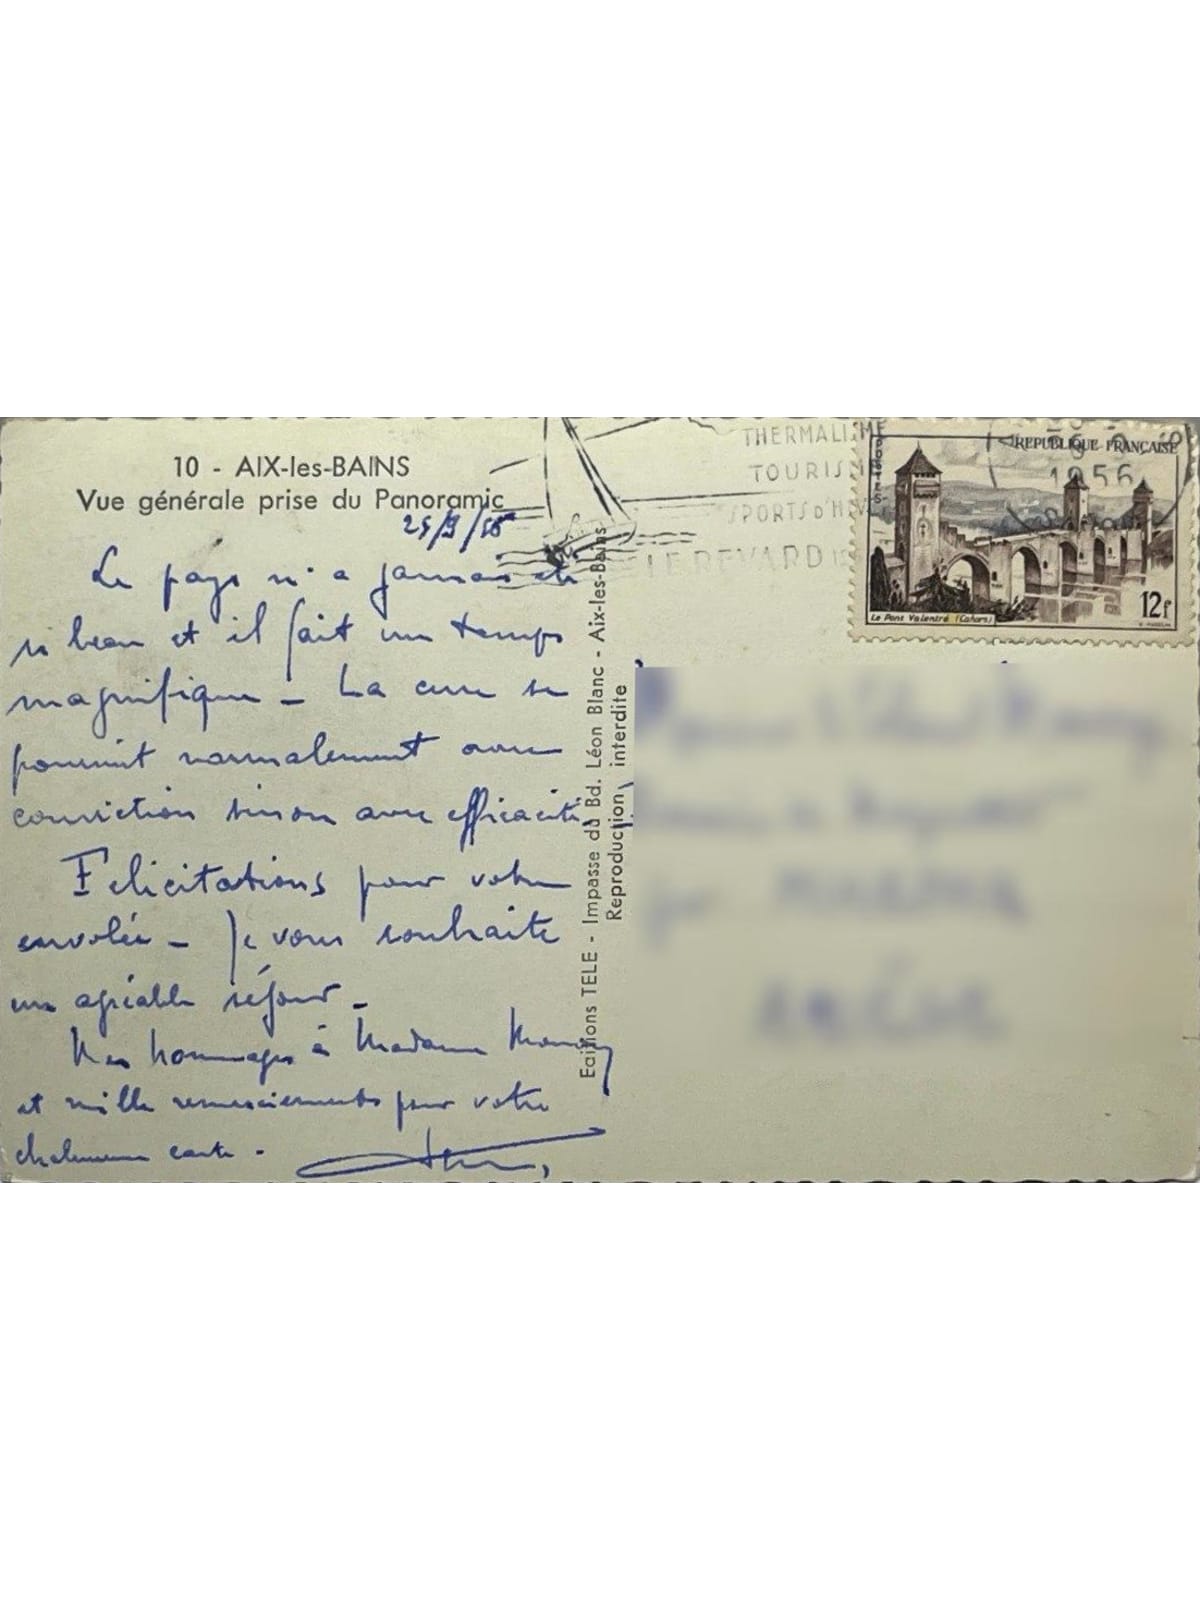 10 - AIX-les-BAINS
Vue générale prise du Panoramic
25/9/56
Le pays n'a jamais été
si beau et il fait un temps
magnifique - La cure se
poursuit normalement avec
conviction sinon avec efficacité.
Félicitations pour votre
envolée - Je vous souhaite
un agréable séjour -
Mes hommages à Madame
et mille remerciements pour votre
chaleureuse carte.
Editions TELE - Impasse du Bd. Léon Blanc - Aix-les-Bains
Reproduction interdite
THERMALISME
TOURISM
SPORTS d'HIVE
LE REVARD
1956
REPUBLIQUE FRANÇAISE
POSTES
Le Pont Valentré (Cahors)
12f